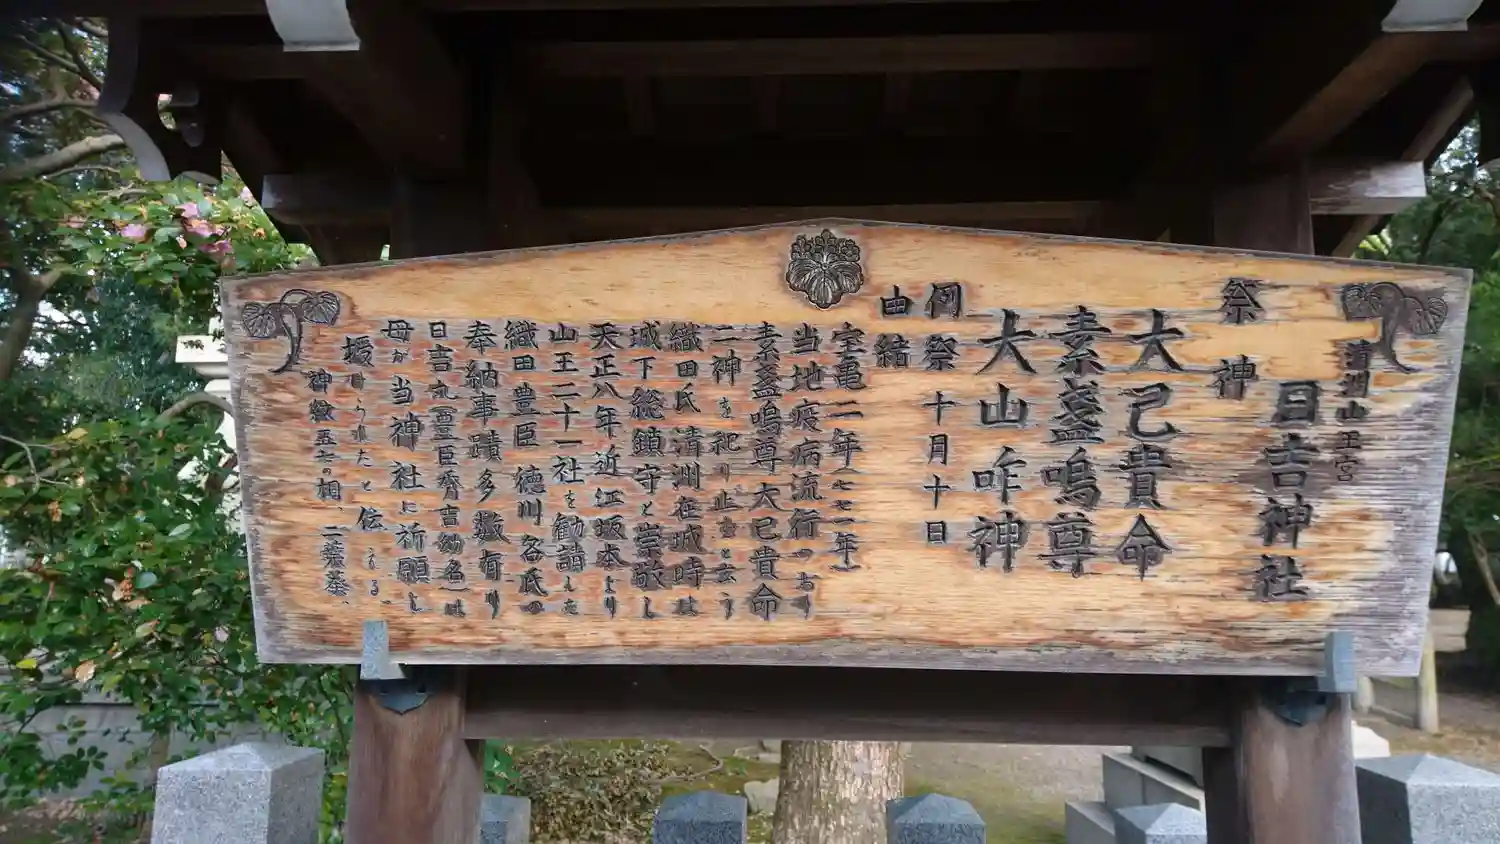 清洲山王宮
日吉神社
祭神
大己貴命
素盞嗚尊
大山咋神
例祭 十月十日
由緒
宝亀二年(七七一年)
当地疫病流行のおり
素盞嗚尊 大己貴命
二神を祀り止むと云う
織田氏 清洲在城時は
城下総鎮守と崇敬し
天正八年近江坂本より
山王二十一社を勧請した
織田 豊臣 徳川各氏の
奉納事蹟多数有り
日吉丸(豊臣秀吉幼名)は
母が当神社に祈願し
授けられたと伝
神数五七の桐、二葉葵、